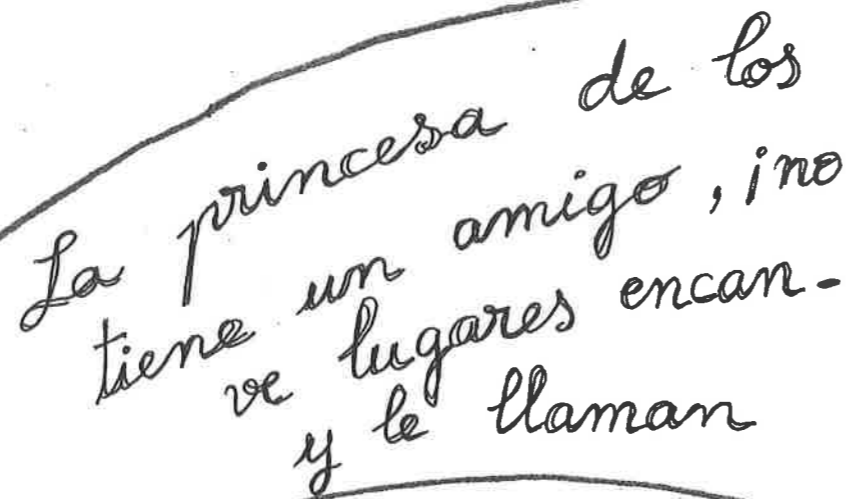 La princesa de los
tiene un amigo, ¡no
ve lugares encan-
y le llaman